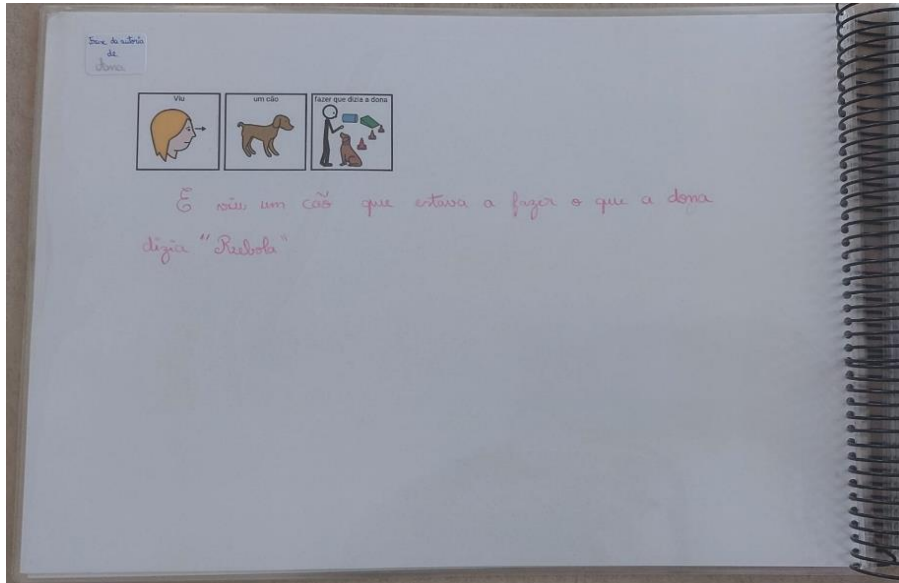 Frase da autoria
de
Viu
um cão
fazer que dizia a dona
E viu um cão que estava a fazer o que a dona
dizia "Reebola".